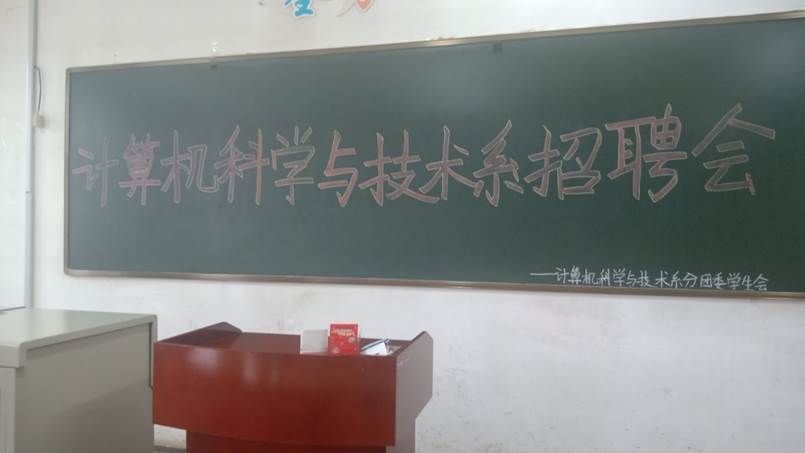 计算机科学与技术系招聘会
——计算机科学与技术系分团委学生会